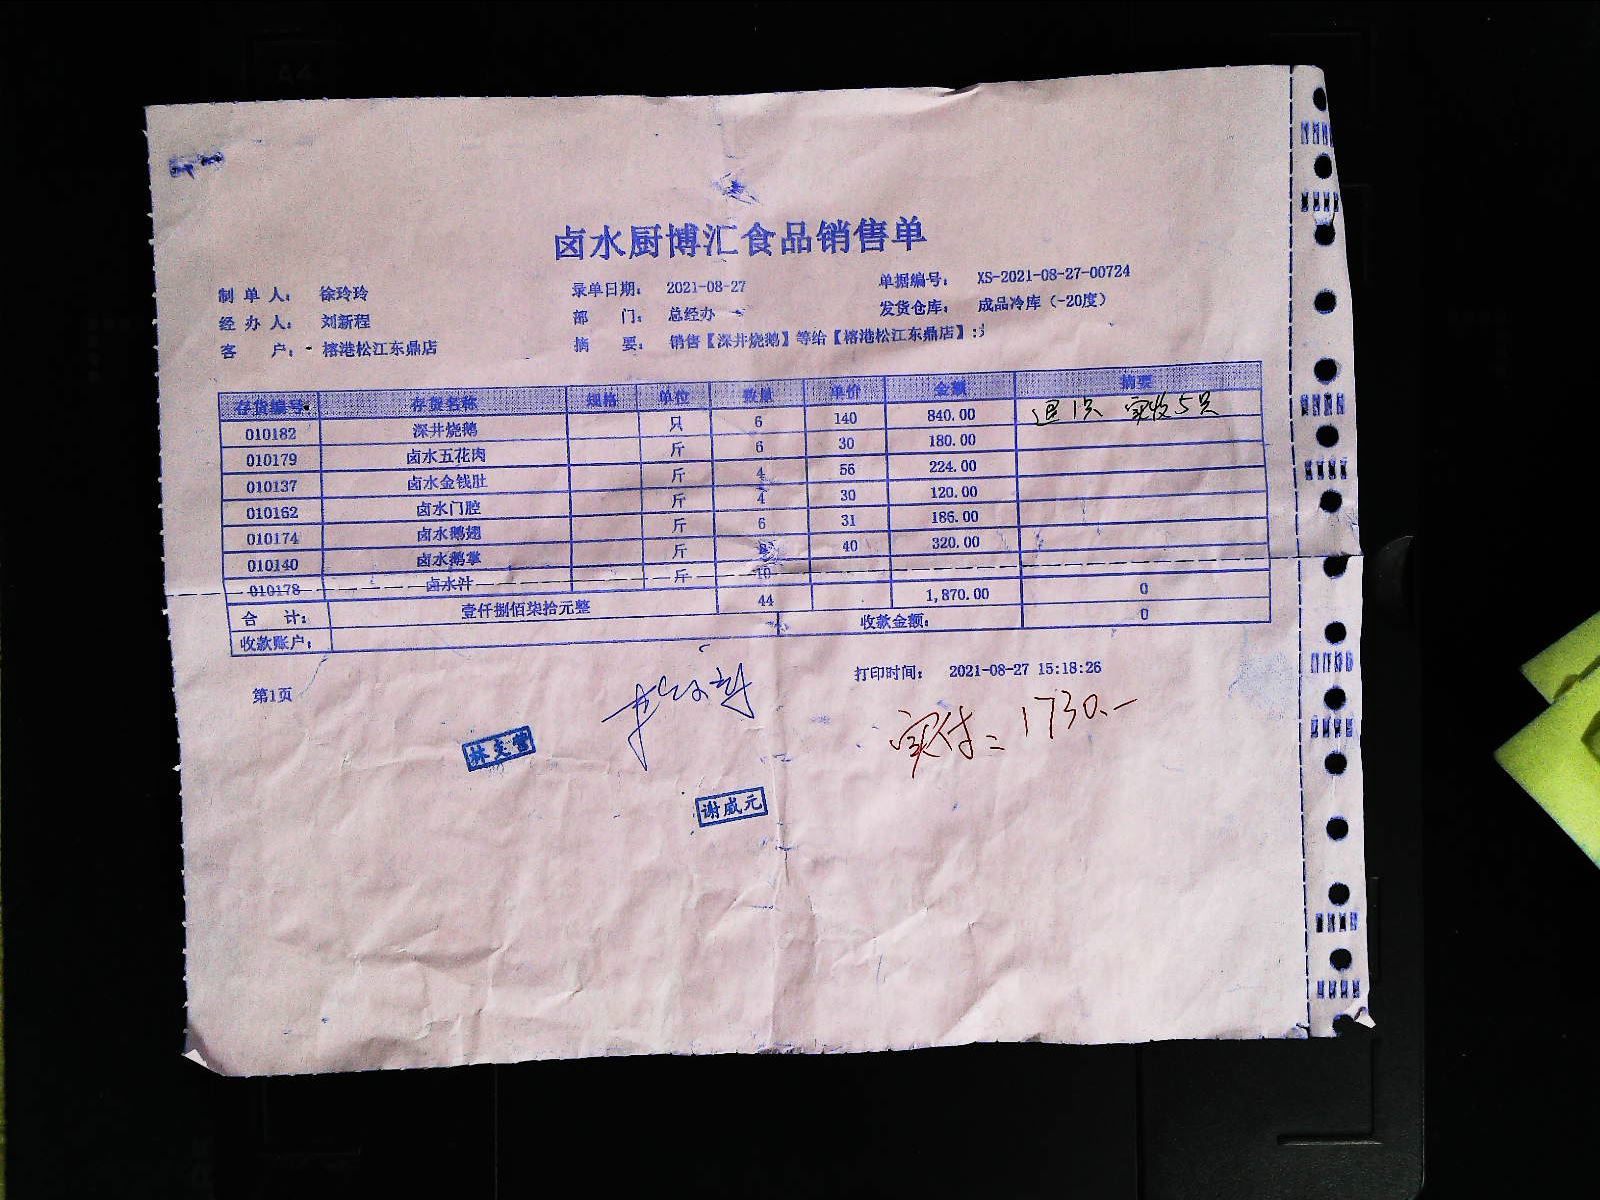 卤水厨博汇食品销售单
制单人： 徐玲玲 录单日期： 2021-08-27 单据编号： XS-2021-08-27-00724
经办人： 刘新程 部 门： 总经办 发货仓库： 成品冷库（-20度）
客 户： 榕港松江东鼎店 摘 要： 销售【深井烧鹅】等给【榕港松江东鼎店】:
存货编号 存货名称 规格 单位 数量 单价 金额 摘要
010182 深井烧鹅 只 6 140 840.00 退1只 实收5只
010179 卤水五花肉 斤 6 30 180.00
010137 卤水金钱肚 斤 4 56 224.00
010162 卤水门腔 斤 4 30 120.00
010174 卤水鹅翅 斤 6 31 186.00
010140 卤水鹅掌 斤 8 40 320.00
010178 卤水汁 斤 10
合 计： 壹仟捌佰柒拾元整 44 1,870.00 0
收款账户： 收款金额： 0
第1页 打印时间： 2021-08-27 15:18:26
实付=1730.-
谢威元